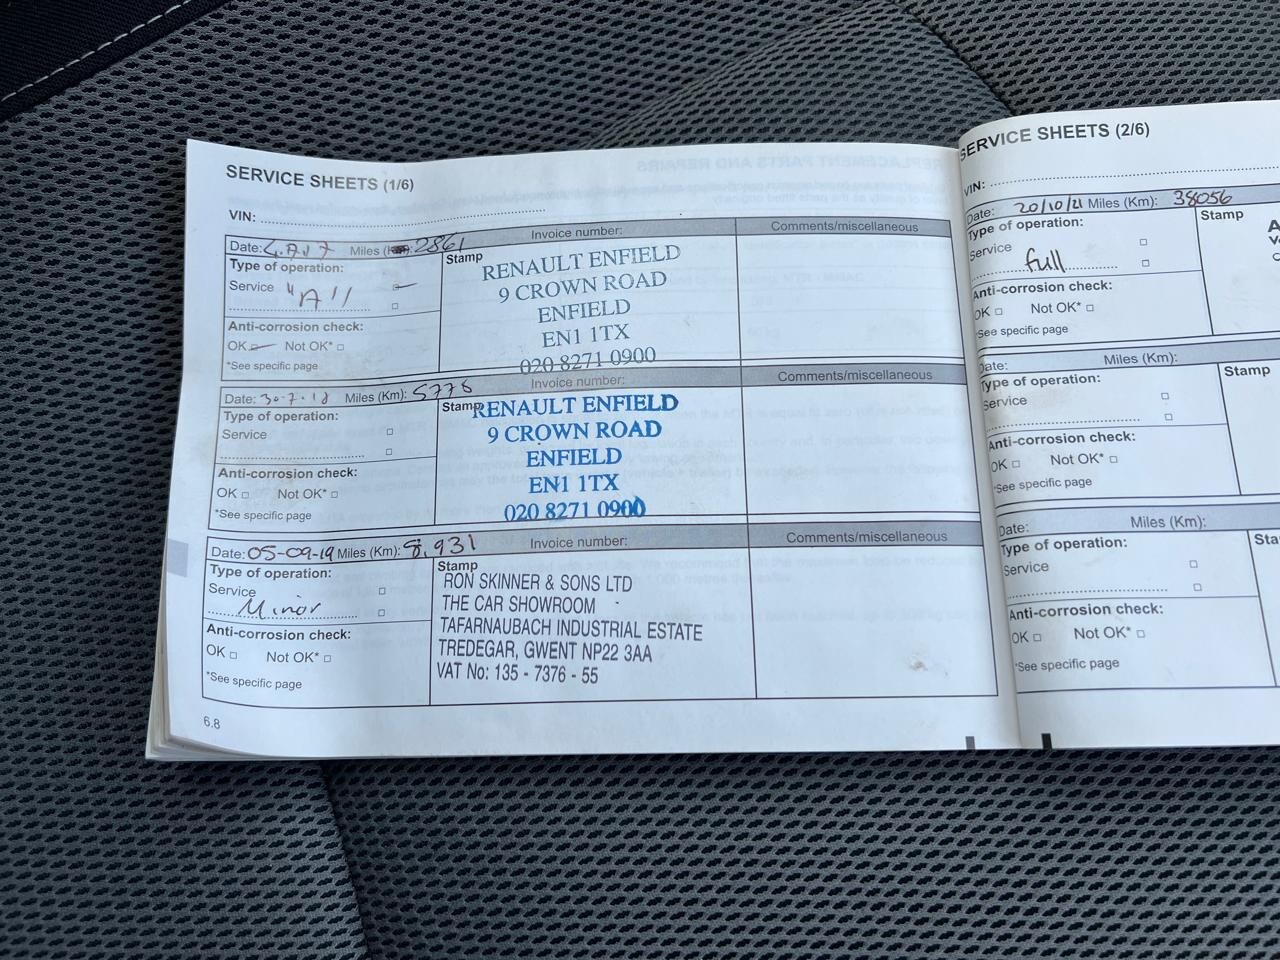 SERVICE SHEETS (1/6)
VIN:
Date: Miles 2861 Invoice number: Comments/miscellaneous
Type of operation:
Service "A"
Anti-corrosion check:
OK Not OK*
*See specific page
Stamp
RENAULT ENFIELD
9 CROWN ROAD
ENFIELD
EN1 1TX
020 8271 0900
Date: 30-7-18 Miles (Km): 5775 Invoice number: Comments/miscellaneous
Type of operation:
Service
Anti-corrosion check:
OK Not OK*
*See specific page
Stamp
RENAULT ENFIELD
9 CROWN ROAD
ENFIELD
EN1 1TX
020 8271 0900
Date: 05-09-19 Miles (Km): 8,931 Invoice number: Comments/miscellaneous
Type of operation:
Service
Minor
Anti-corrosion check:
OK Not OK*
*See specific page
Stamp
RON SKINNER & SONS LTD
THE CAR SHOWROOM
TAFARNAUBACH INDUSTRIAL ESTATE
TREDEGAR, GWENT NP22 3AA
VAT No: 135 - 7376 - 55
6.8
SERVICE SHEETS (2/6)
VIN:
Date: 20/10/21 Miles (Km): 38056
Type of operation:
Service
full
Anti-corrosion check:
OK Not OK*
*See specific page
Stamp
Date: Miles (Km):
Type of operation:
Service
Anti-corrosion check:
OK Not OK*
*See specific page
Stamp
Date: Miles (Km):
Type of operation:
Service
Anti-corrosion check:
OK Not OK*
*See specific page